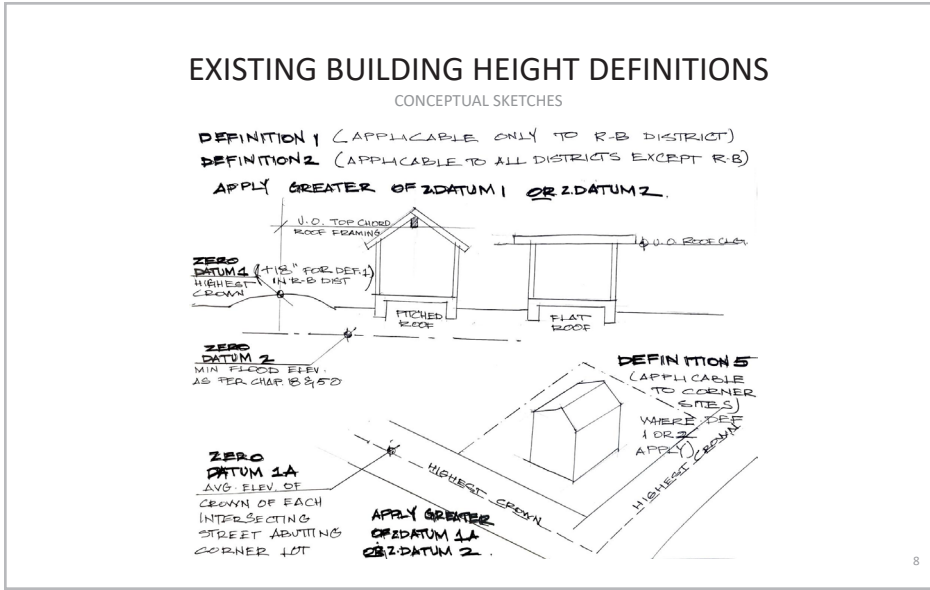 EXISTING BUILDING HEIGHT DEFINITIONS
CONCEPTUAL SKETCHES
DEFINITION 1 (APPLICABLE ONLY TO R-B DISTRICT)
DEFINITION 2 (APPLICABLE TO ALL DISTRICTS EXCEPT R-B)
APPLY GREATER OF Z.DATUM 1 OR Z.DATUM 2.
U.O. TOP CHORD
ROOF FRAMING
U.O. ROOF CLG.
ZERO
DATUM 1 (+18" FOR DEF.1
HIGHEST IN R-B DIST)
CROWN
PITCHED
ROOF
FLAT
ROOF
ZERO
DATUM 2
MIN FLOOD ELEV.
AS PER CHAP. 18 & 50
DEFINITION 5
(APPLICABLE
TO CORNER
SITES)
WHERE DEF
1 OR 2
APPLY)
HIGHEST CROWN
HIGHEST CROWN
ZERO
DATUM 1A
AVG. ELEV. OF
CROWN OF EACH
INTERSECTING
STREET ABUTTING
CORNER LOT
APPLY GREATER
OF Z.DATUM 1A
OR Z.DATUM 2.
8